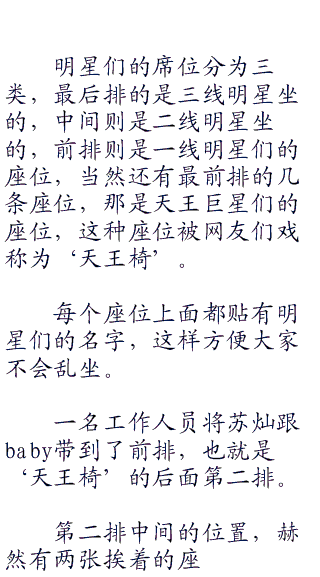 明星们的席位分为三
类，最后排的是三线明星坐
的，中间则是二线明星坐
的，前排则是一线明星们的
座位，当然还有最前排的几
条座位，那是天王巨星们的
座位，这种座位被网友们戏
称为‘天王椅’。
每个座位上面都贴有明
星们的名字，这样方便大家
不会乱坐。
一名工作人员将苏灿跟
baby带到了前排，也就是
‘天王椅’的后面第二排。
第二排中间的位置，赫
然有两张挨着的座